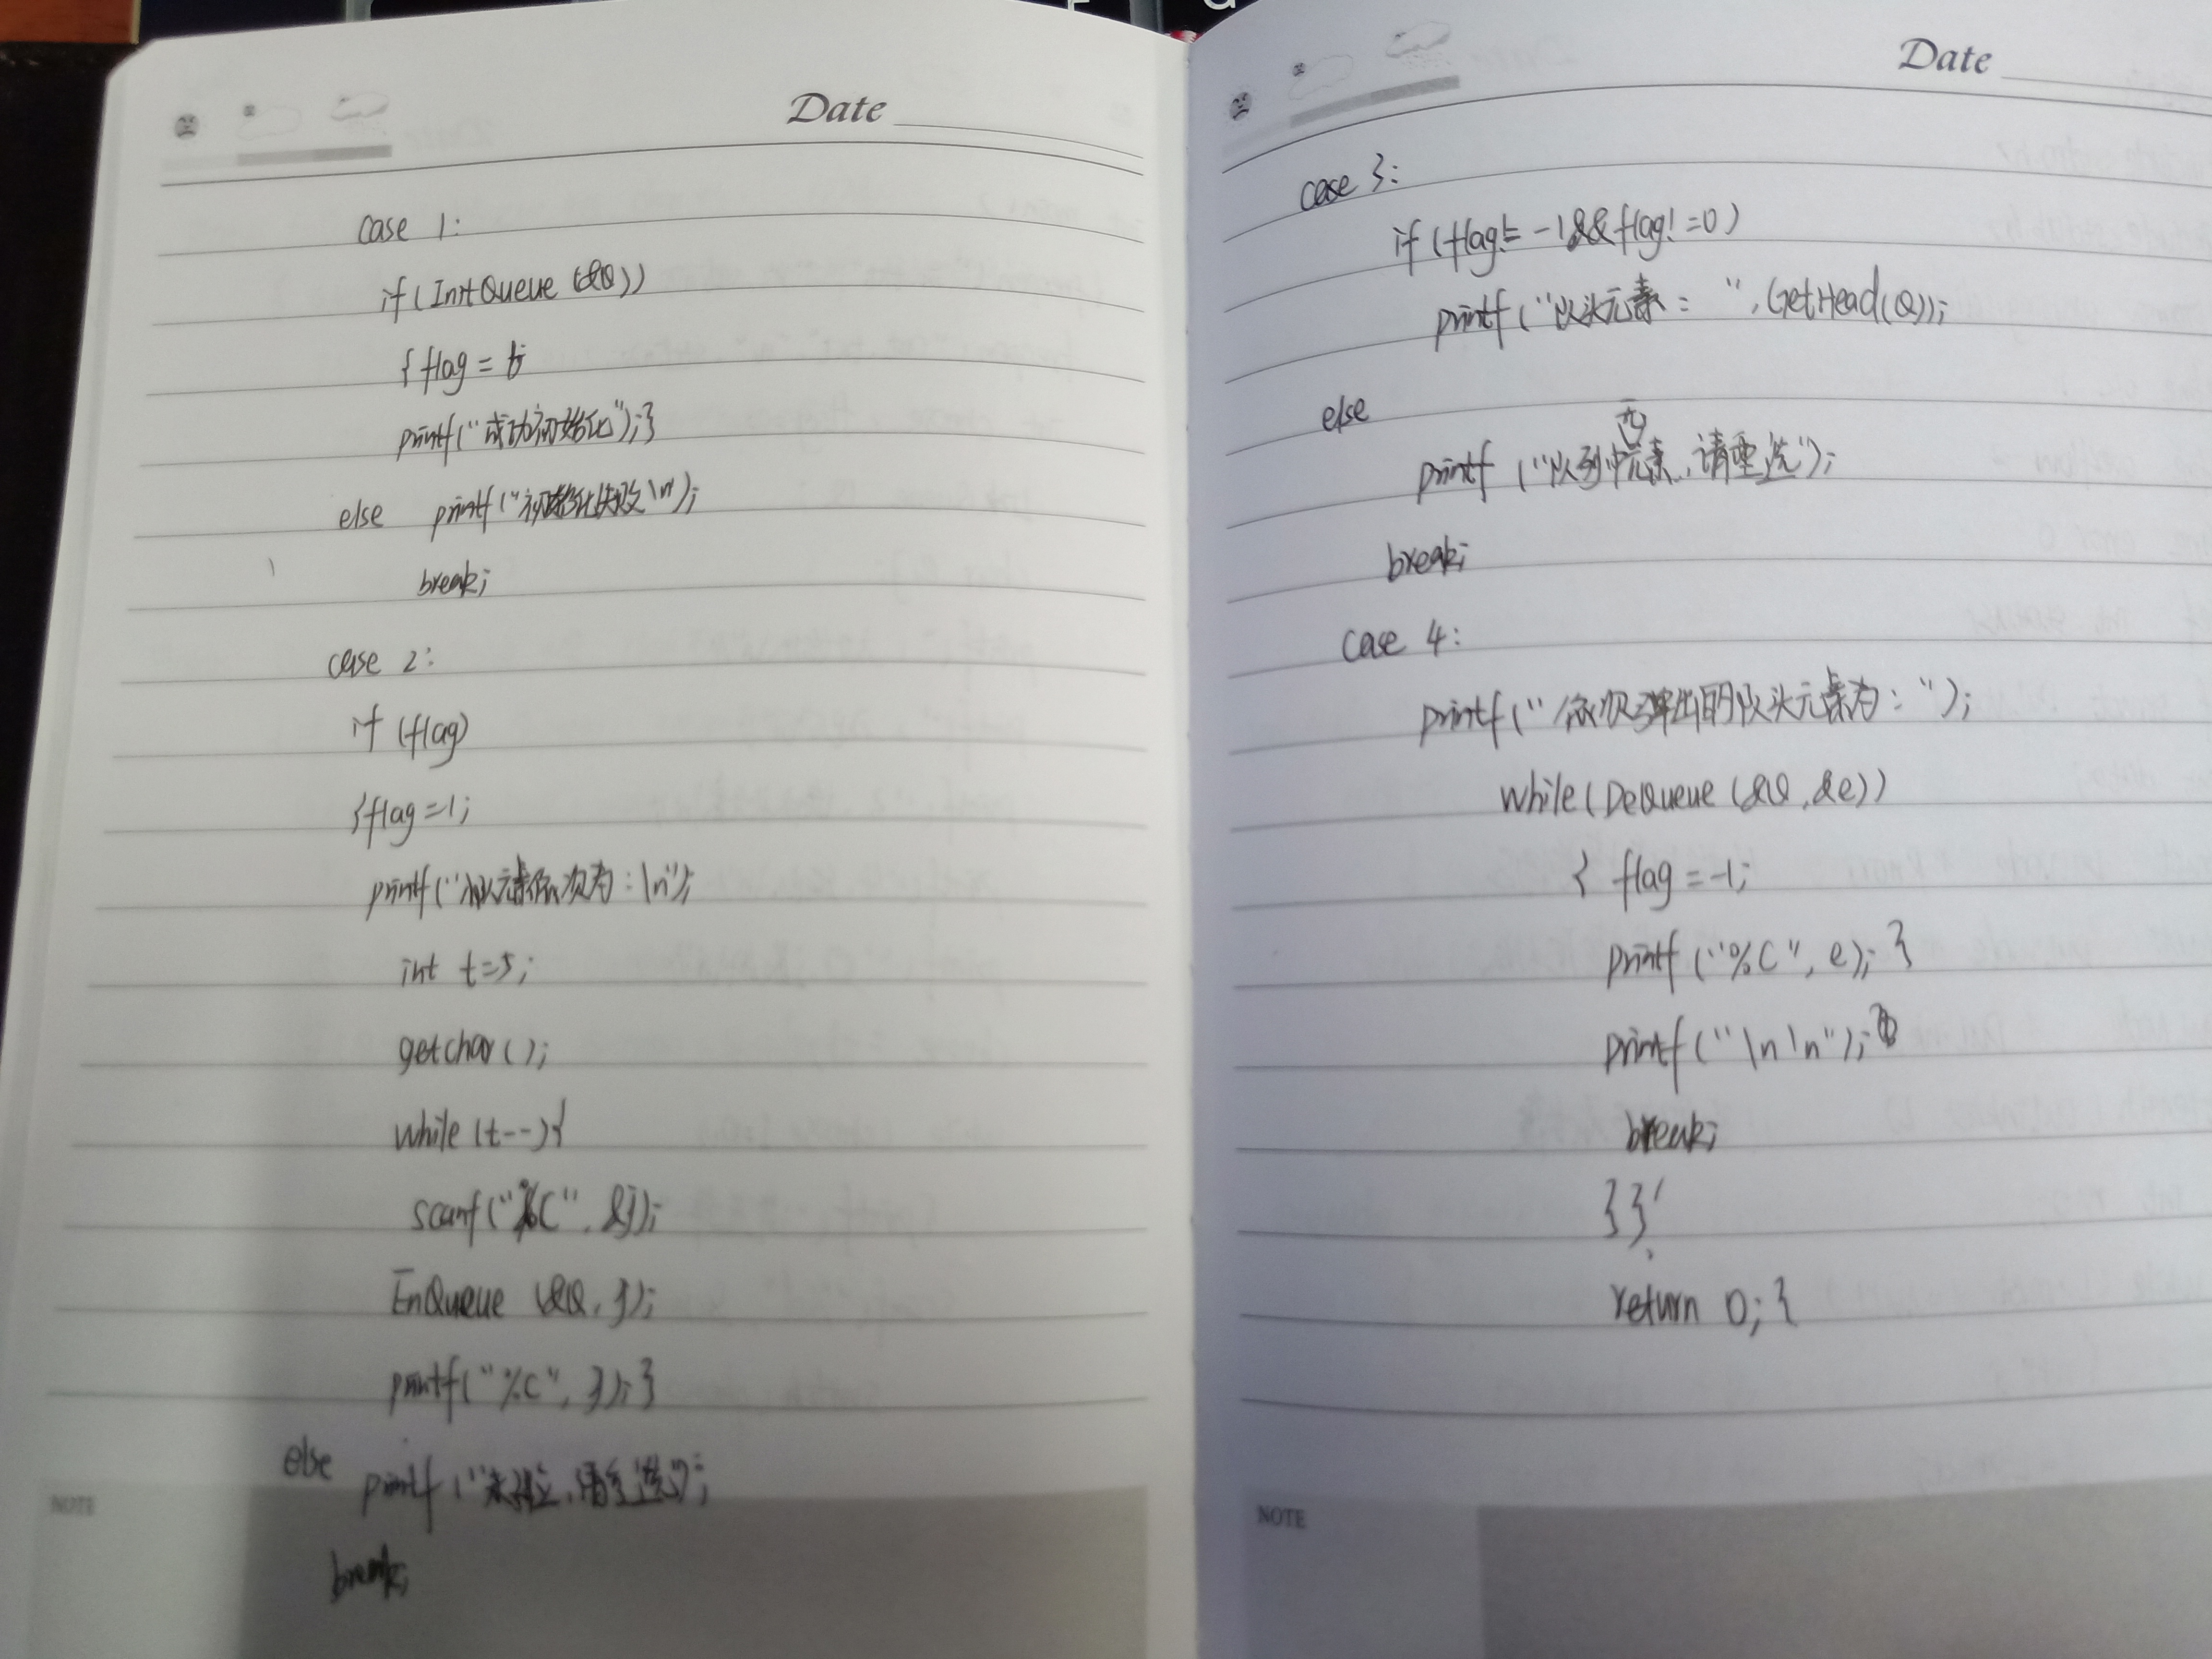 Date
case 1:
if(InitQueue (&Q))
{ flag =
printf("成功初始化");}
else printf("初始化失败\n");
break;
case 2:
if (flag)
{flag=1;
printf("入队元素依次为:\n");
int t=5;
getchar();
while (t--){
scanf("%c", &j);
EnQueue (&Q, j);
printf("%c", j);}
else printf("未建立,请重选");
break;
NOTE
Date
case 3:
if (flag!= -1&&flag! =0)
printf("队头元素: ",GetHead(Q));
else
printf ("队列中无元素,请重选");
break;
case 4:
printf("依次弹出的队头元素为: ");
while(DeQueue (&Q,&e))
{ flag=-1;
printf ("%c", e); }
printf("\n\n");
break;
}}
return 0; {
NOTE